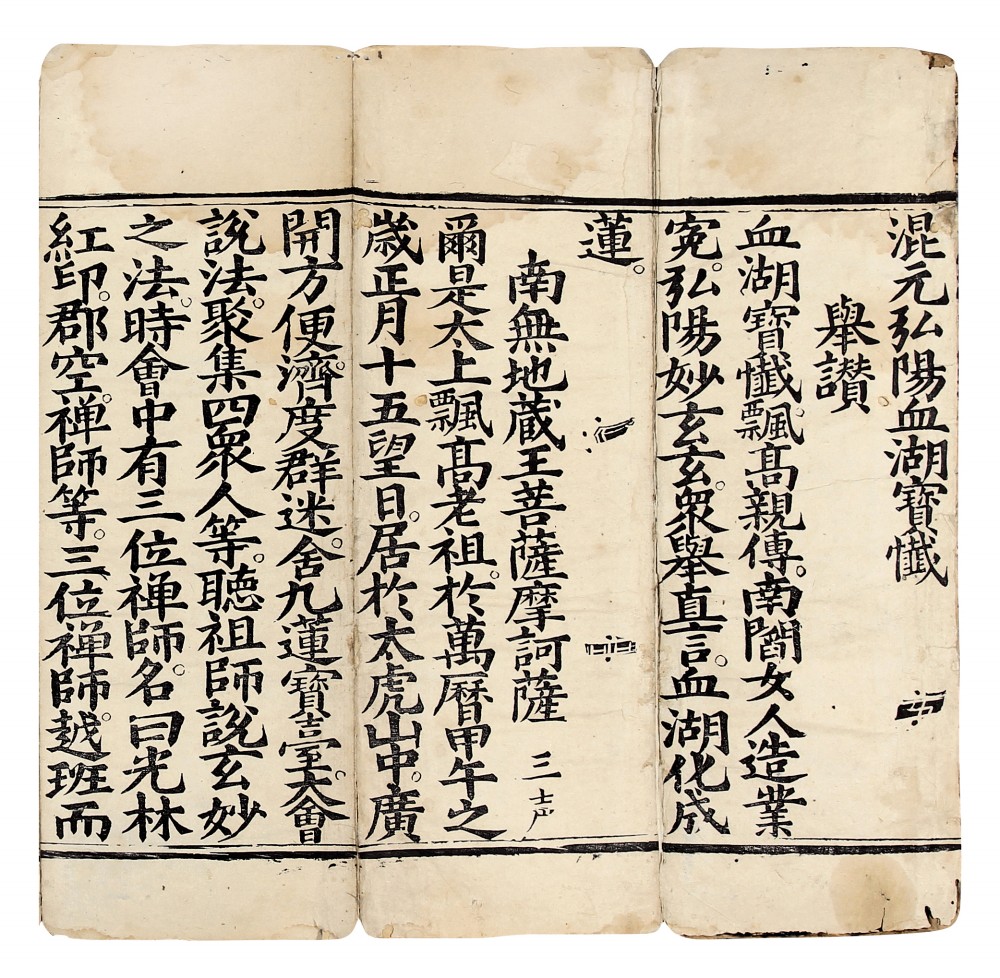 混元弘陽血湖寶懺
舉讃
血湖寶懺。飄髙親傳。南閻女人造業
寃。弘陽妙玄玄。衆舉真言。血湖化成
蓮。
南無地蔵王菩薩摩訶薩 三
爾是太上飄髙老祖。於萬曆甲午之
歳正月十五望日。居於太虎山中。廣
開方便。濟度群迷。舍九蓮寶臺。大會
說法。聚集四衆人等。聴祖師說玄妙
之法。時會中有三位禅師。名曰光林
紅印。郡空。禅師等。三位禅師。越班而